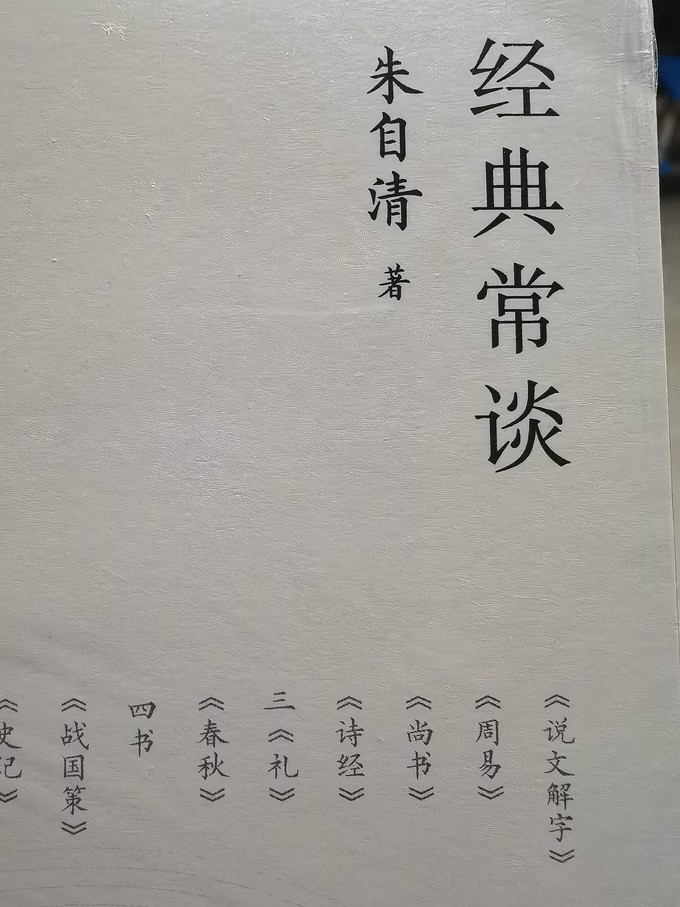 经典常谈
朱自清 著
《说文解字》
《周易》
《尚书》
《诗经》
三《礼》
《春秋》
四书
《战国策》
《史记》